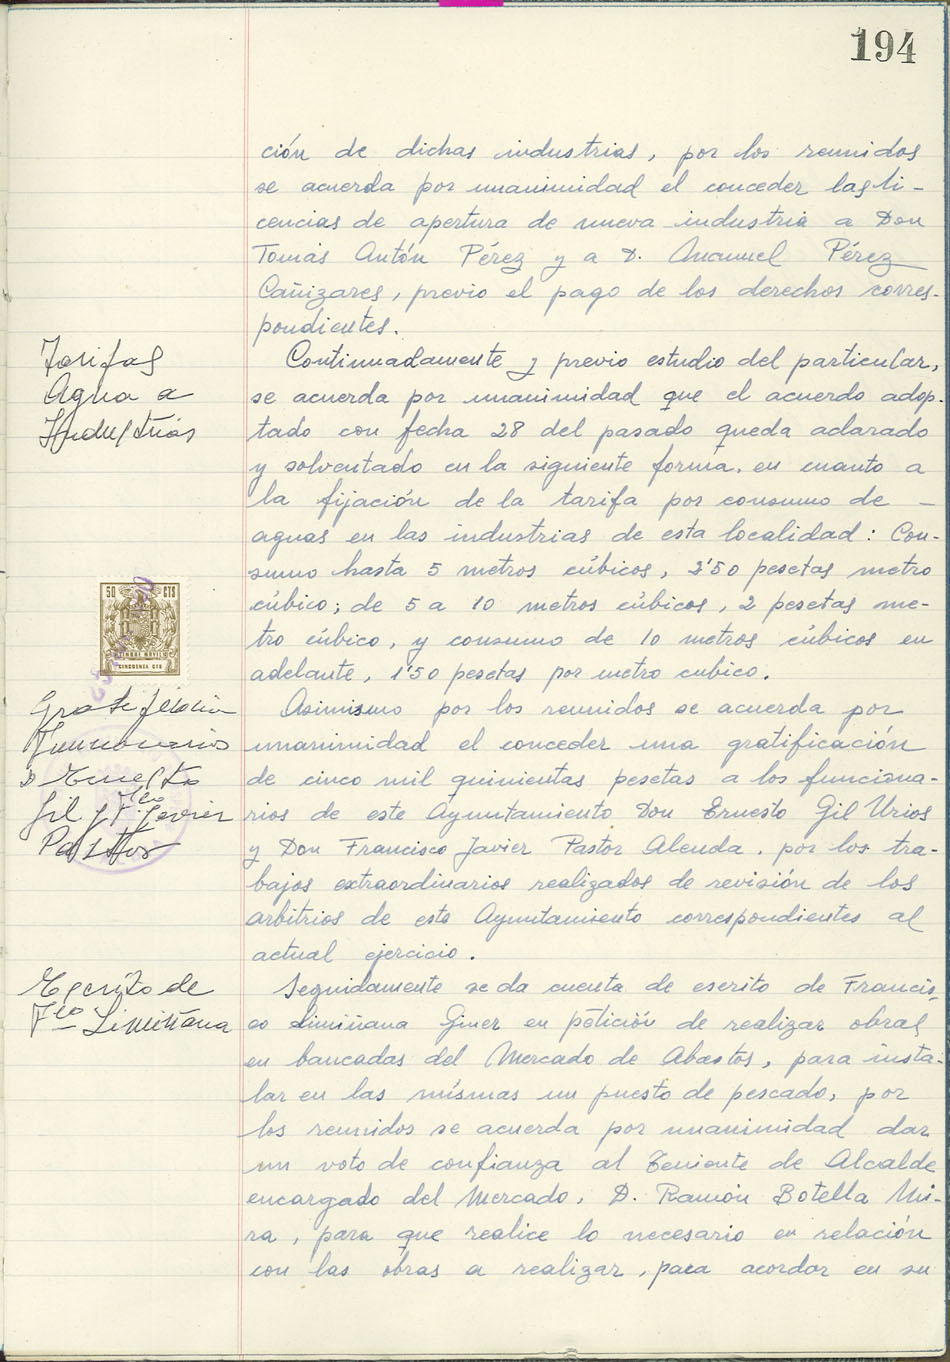 194
ción de dichas industrias, por los reunidos
se acuerda por unanimidad el conceder las li-
cencias de apertura de nueva industria a Don
Tomás Antón Pérez y a D. Manuel Pérez
Cañizares, previo el pago de los derechos corres-
pondientes.
Tarifas
Agua a
Industrias
Continuadamente y previo estudio del particular,
se acuerda por unanimidad que el acuerdo adop-
tado con fecha 28 del pasado queda aclarado
y solventado en la siguiente forma, en cuanto a
la fijación de la tarifa por consumo de -
aguas en las industrias de esta localidad: Con-
sumo hasta 5 metros cúbicos, 2'50 pesetas metro
cúbico; de 5 a 10 metros cúbicos, 2 pesetas me-
tro cúbico, y consumo de 10 metros cúbicos en
adelante, 1'50 pesetas por metro cubico.
50 CTS
TIMBRE MÓVIL
CINCUENTA CTS
Gratificación
Funcionarios
D Ernesto
Gil y Fco Javier
Pastor
Asimismo por los reunidos se acuerda por
unanimidad el conceder una gratificación
de cinco mil quinientas pesetas a los funciona-
rios de este Ayuntamiento Don Ernesto Gil Urios
y Don Francisco Javier Pastor Alenda, por los tra-
bajos extraordinarios realizados de revisión de los
arbitrios de este Ayuntamiento correspondientes al
actual ejercicio.
Escrito de
Fco Limiñana
Seguidamente se da cuenta de escrito de Francis-
co Limiñana Giner en petición de realizar obras
en bancadas del Mercado de Abastos, para insta-
lar en las mismas un puesto de pescado, por
los reunidos se acuerda por unanimidad dar
un voto de confianza al Teniente de Alcalde
encargado del Mercado, D. Ramón Botella Mi-
ra, para que realice lo necesario en relación
con las obras a realizar, para acordar en su